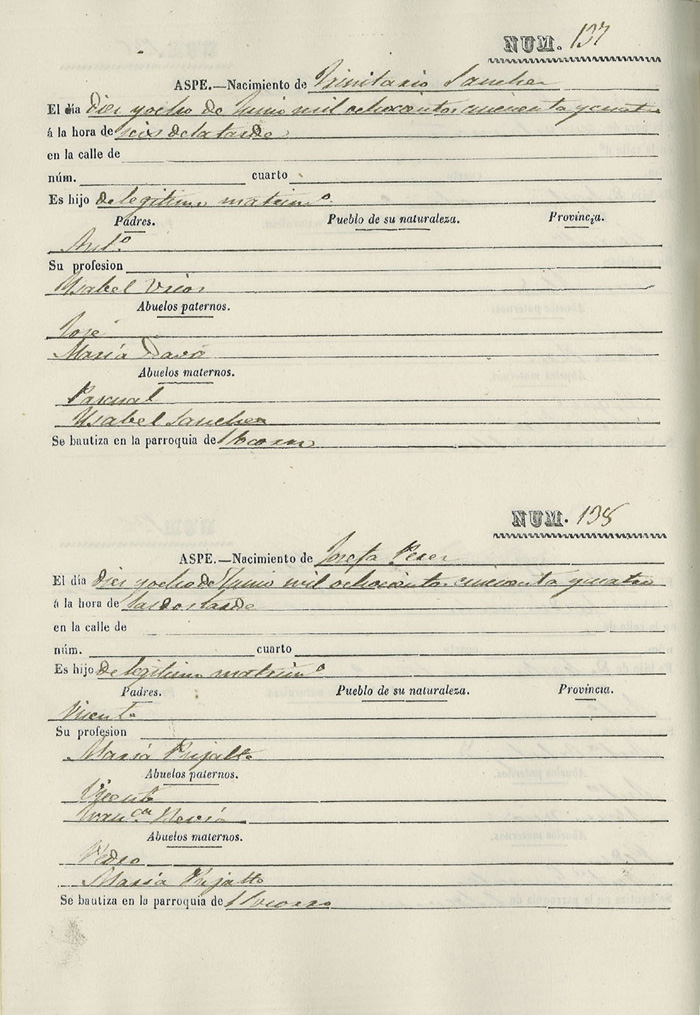 NUM. 137
ASPE.—Nacimiento de Trinitario Sanchez
El día diez yocho de Junio mil ochocientos cincuenta y cuatro
á la hora de seis de la tarde
en la calle de
núm. cuarto
Es hijo de legitimo matrim.º
Padres. Pueblo de su naturaleza. Provincia.
Ant.º
Su profesion
Ysabel
Abuelos paternos.
José
Maria Davó
Abuelos maternos.
Pascual
Ysabel Sanchez
Se bautiza en la parroquia de
NUM. 138
ASPE.—Nacimiento de Josefa Perez
El día diez yocho de Junio mil ochocientos cincuenta y cuatro
á la hora de las dos tarde
en la calle de
núm. cuarto
Es hijo de legitimo matrim.º
Padres. Pueblo de su naturaleza. Provincia.
Vicente
Su profesion
Maria
Abuelos paternos.
Vicente
Fran.ca
Abuelos maternos.
Pedro
Maria
Se bautiza en la parroquia de